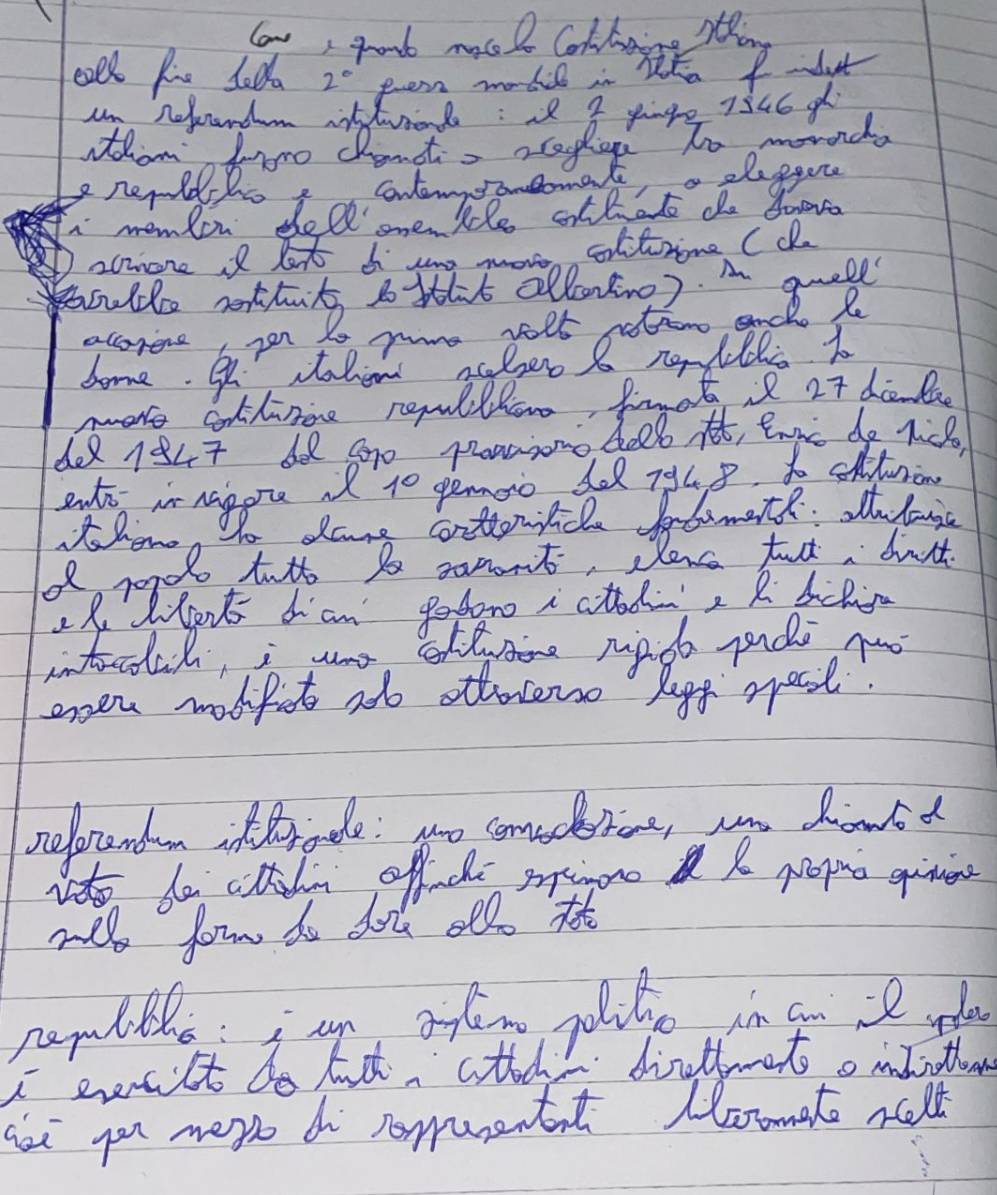 Come, quando nasce la Costituzione Italiana
alla fine della 2° guerra mondiale in Italia fu indett
un referendum istituzionale : il 2 giugno 1946 gli
italiani furono chiamati a scegliere tra monarchia
e repubblica e contemporaneamente, a eleggere
i membri dell'assemblea costituente che doveva
scrivere il testo di una nuova costituzione (che
avrebbe sostituito lo Statuto Albertino). In quell'
occasione, per la prima volta votarono anche le
donne. Gli italiani scelsero la repubblica. La
nuova costituzione repubblicana, firmata il 27 dicembre
del 1947 dal capo provvisorio dello stato, Enrico de Nicola,
entrò in vigore il 1° gennaio del 1948. La costituzione
italiana, ha alcune caratteristiche fondamentali: attribuisce
al popolo tutta la sovranità, elenca tutti i diritti
e le libertà di cui godono i cittadini e li dichiara
intoccabili, è una costituzione rigida perchè può
essere modificata solo attraverso leggi speciali.
referendum istituzionale: una consultazione, una chiamata al
voto dei cittadini affinchè esprimano la propria opinione
sulla forma da dare allo stato
repubblica: è un sistema politico in cui il potere
è esercitato da tutti i cittadini direttamente o indirettamente
cioè per mezzo di rappresentanti liberamente scelti